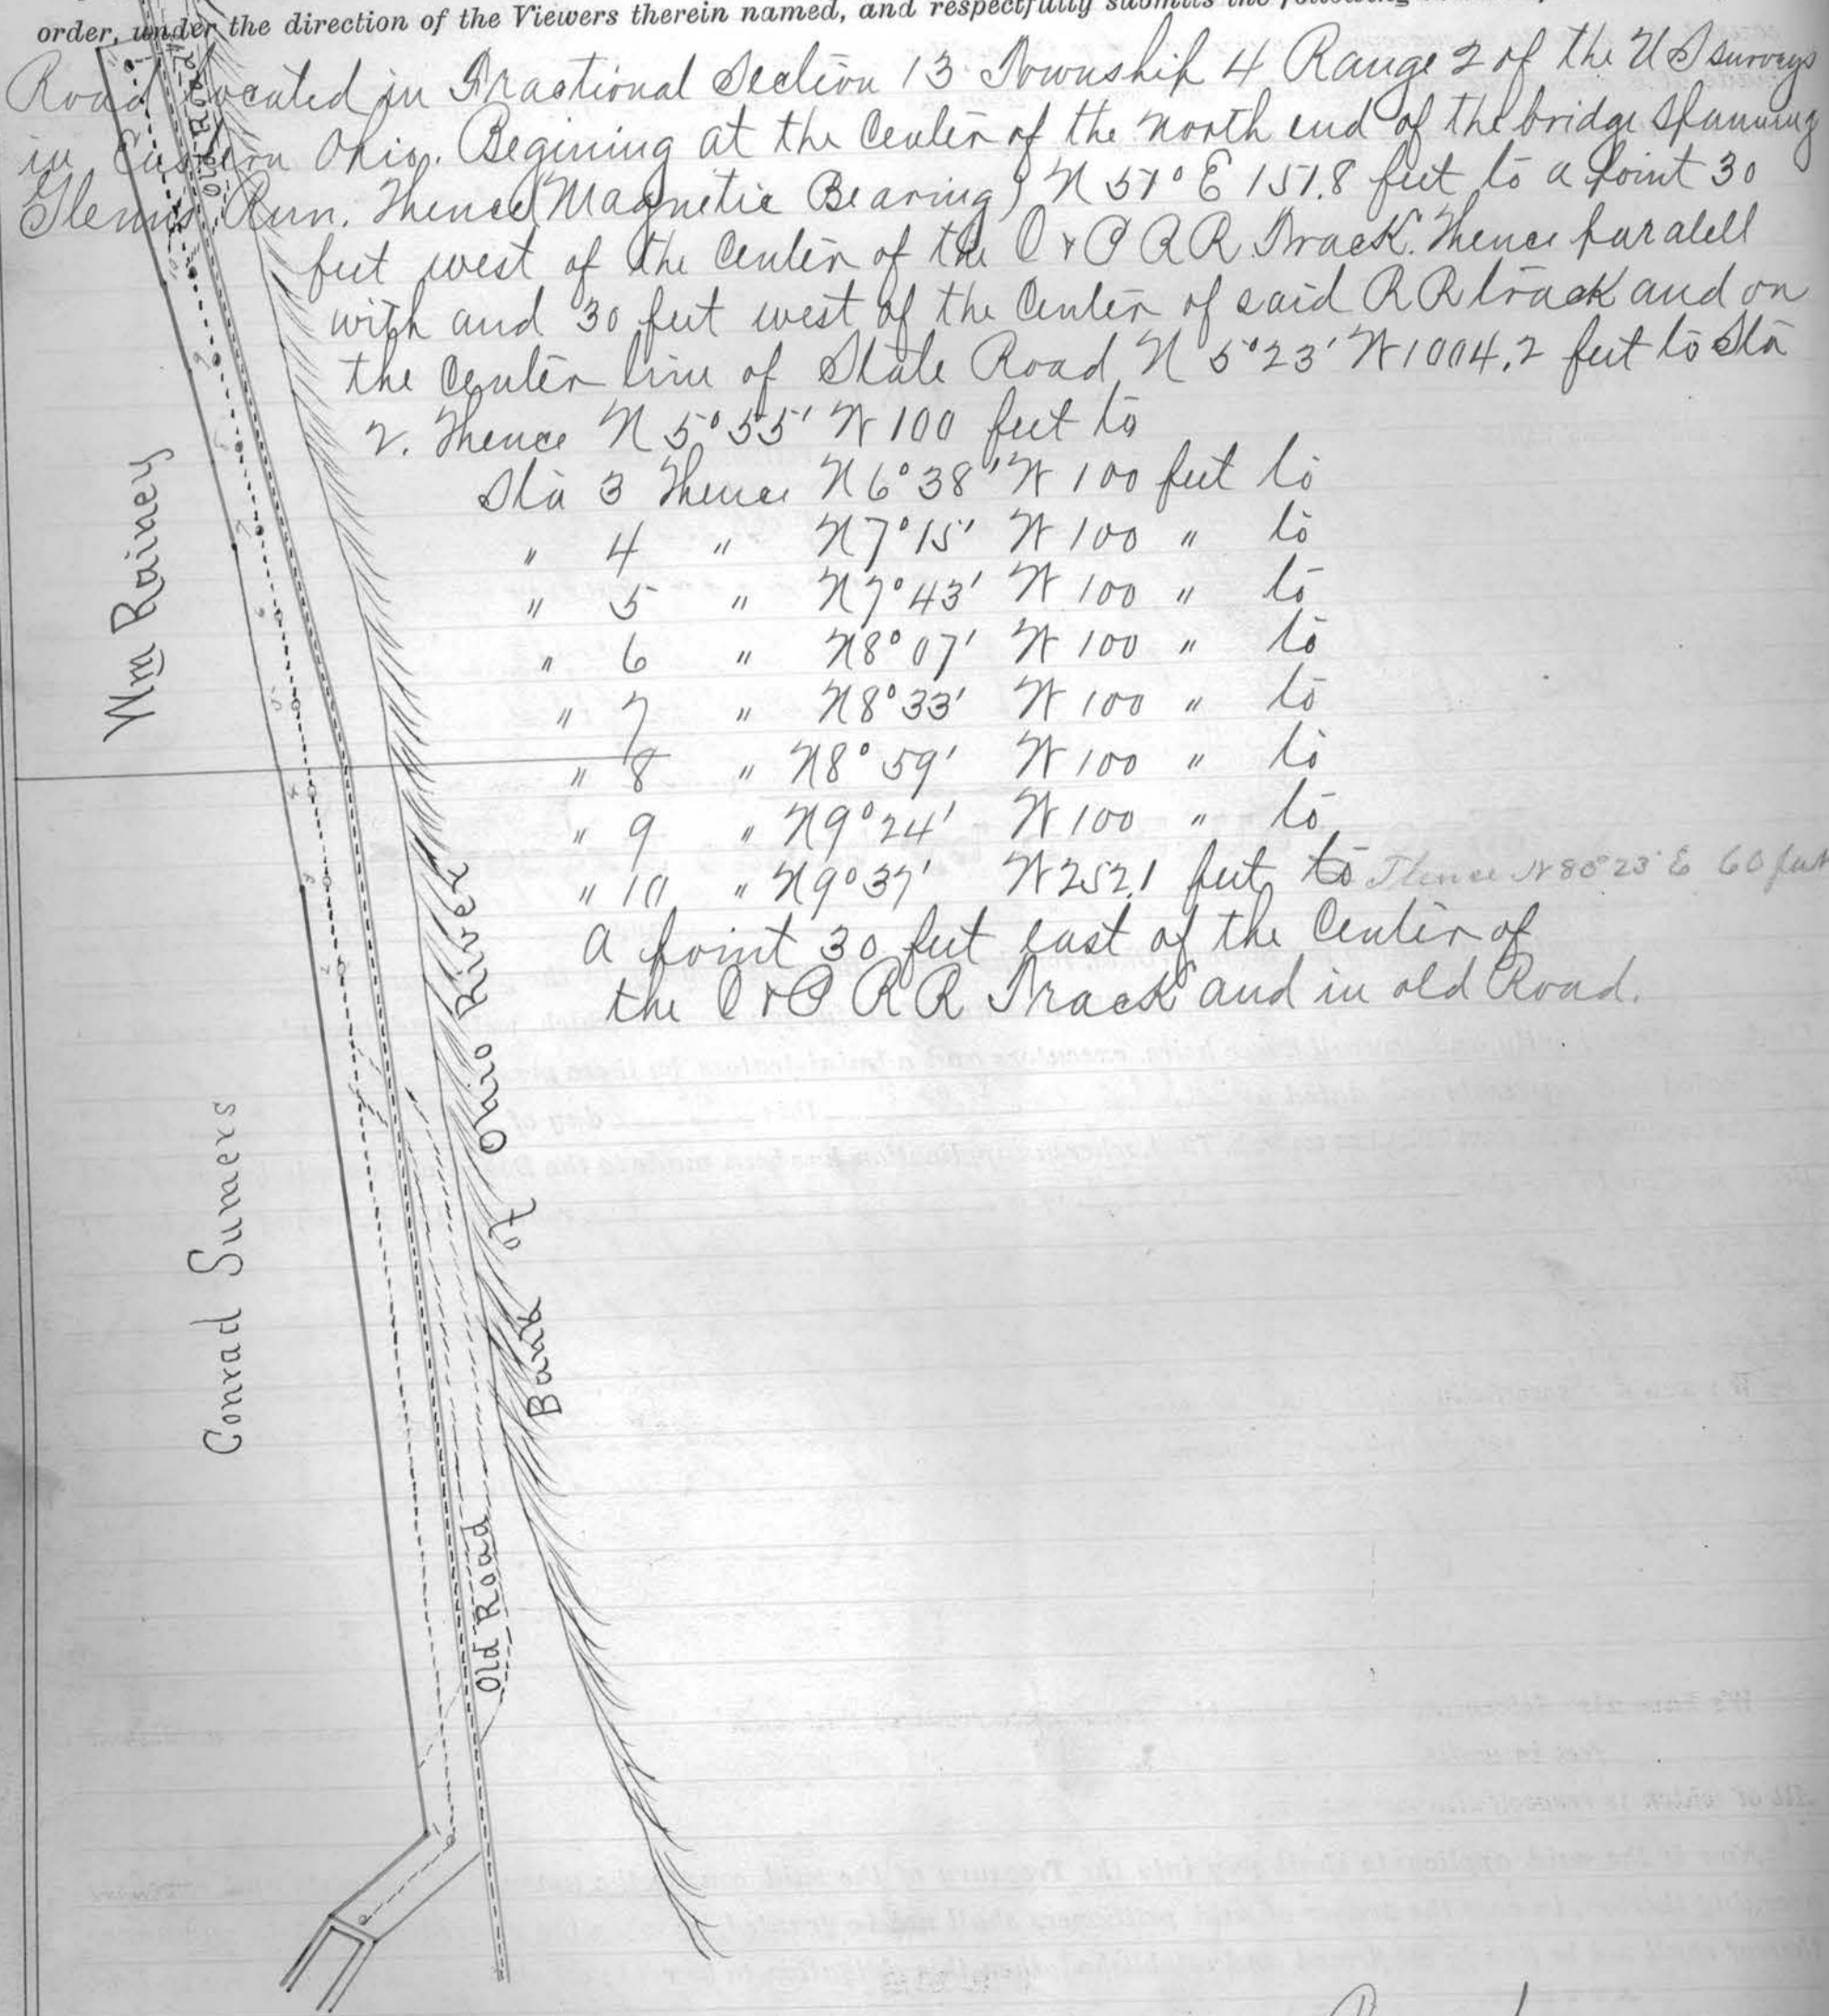 order, under the direction of the Viewers therein named, and respectfully submits the following
Road located in Fractional Section 13 Township 4 Range 2 of the U S surveys
in Eastern Ohio. Begining at the Center of the north end of the bridge spanning
Glenns Run. Thence (Magnetic Bearing) N 51° E 151.8 feet to a point 30
feet west of the Center of the C & P R R Track. Thence paralell
with and 30 feet west of the Center of said R R track and on
the Center line of State Road N 5°23' W 1004.2 feet to Sta
2. Thence N 5°55' W 100 feet to
Sta 3 Thence N 6°38' W 100 feet to
" 4 " N 7°15' W 100 " to
" 5 " N 7°43' W 100 " to
" 6 " N 8°07' W 100 " to
" 7 " N 8°33' W 100 " to
" 8 " N 8°59' W 100 " to
" 9 " N 9°24' W 100 " to
" 10 " N 9°37' W 252.1 feet to Thence N 80°23' E 60 feet
a point 30 feet east of the Center of
the C & P R R Track and in old Road.
Old Road
Wm Rainey
Conrad Sumers
Bank of Ohio River
Old Road